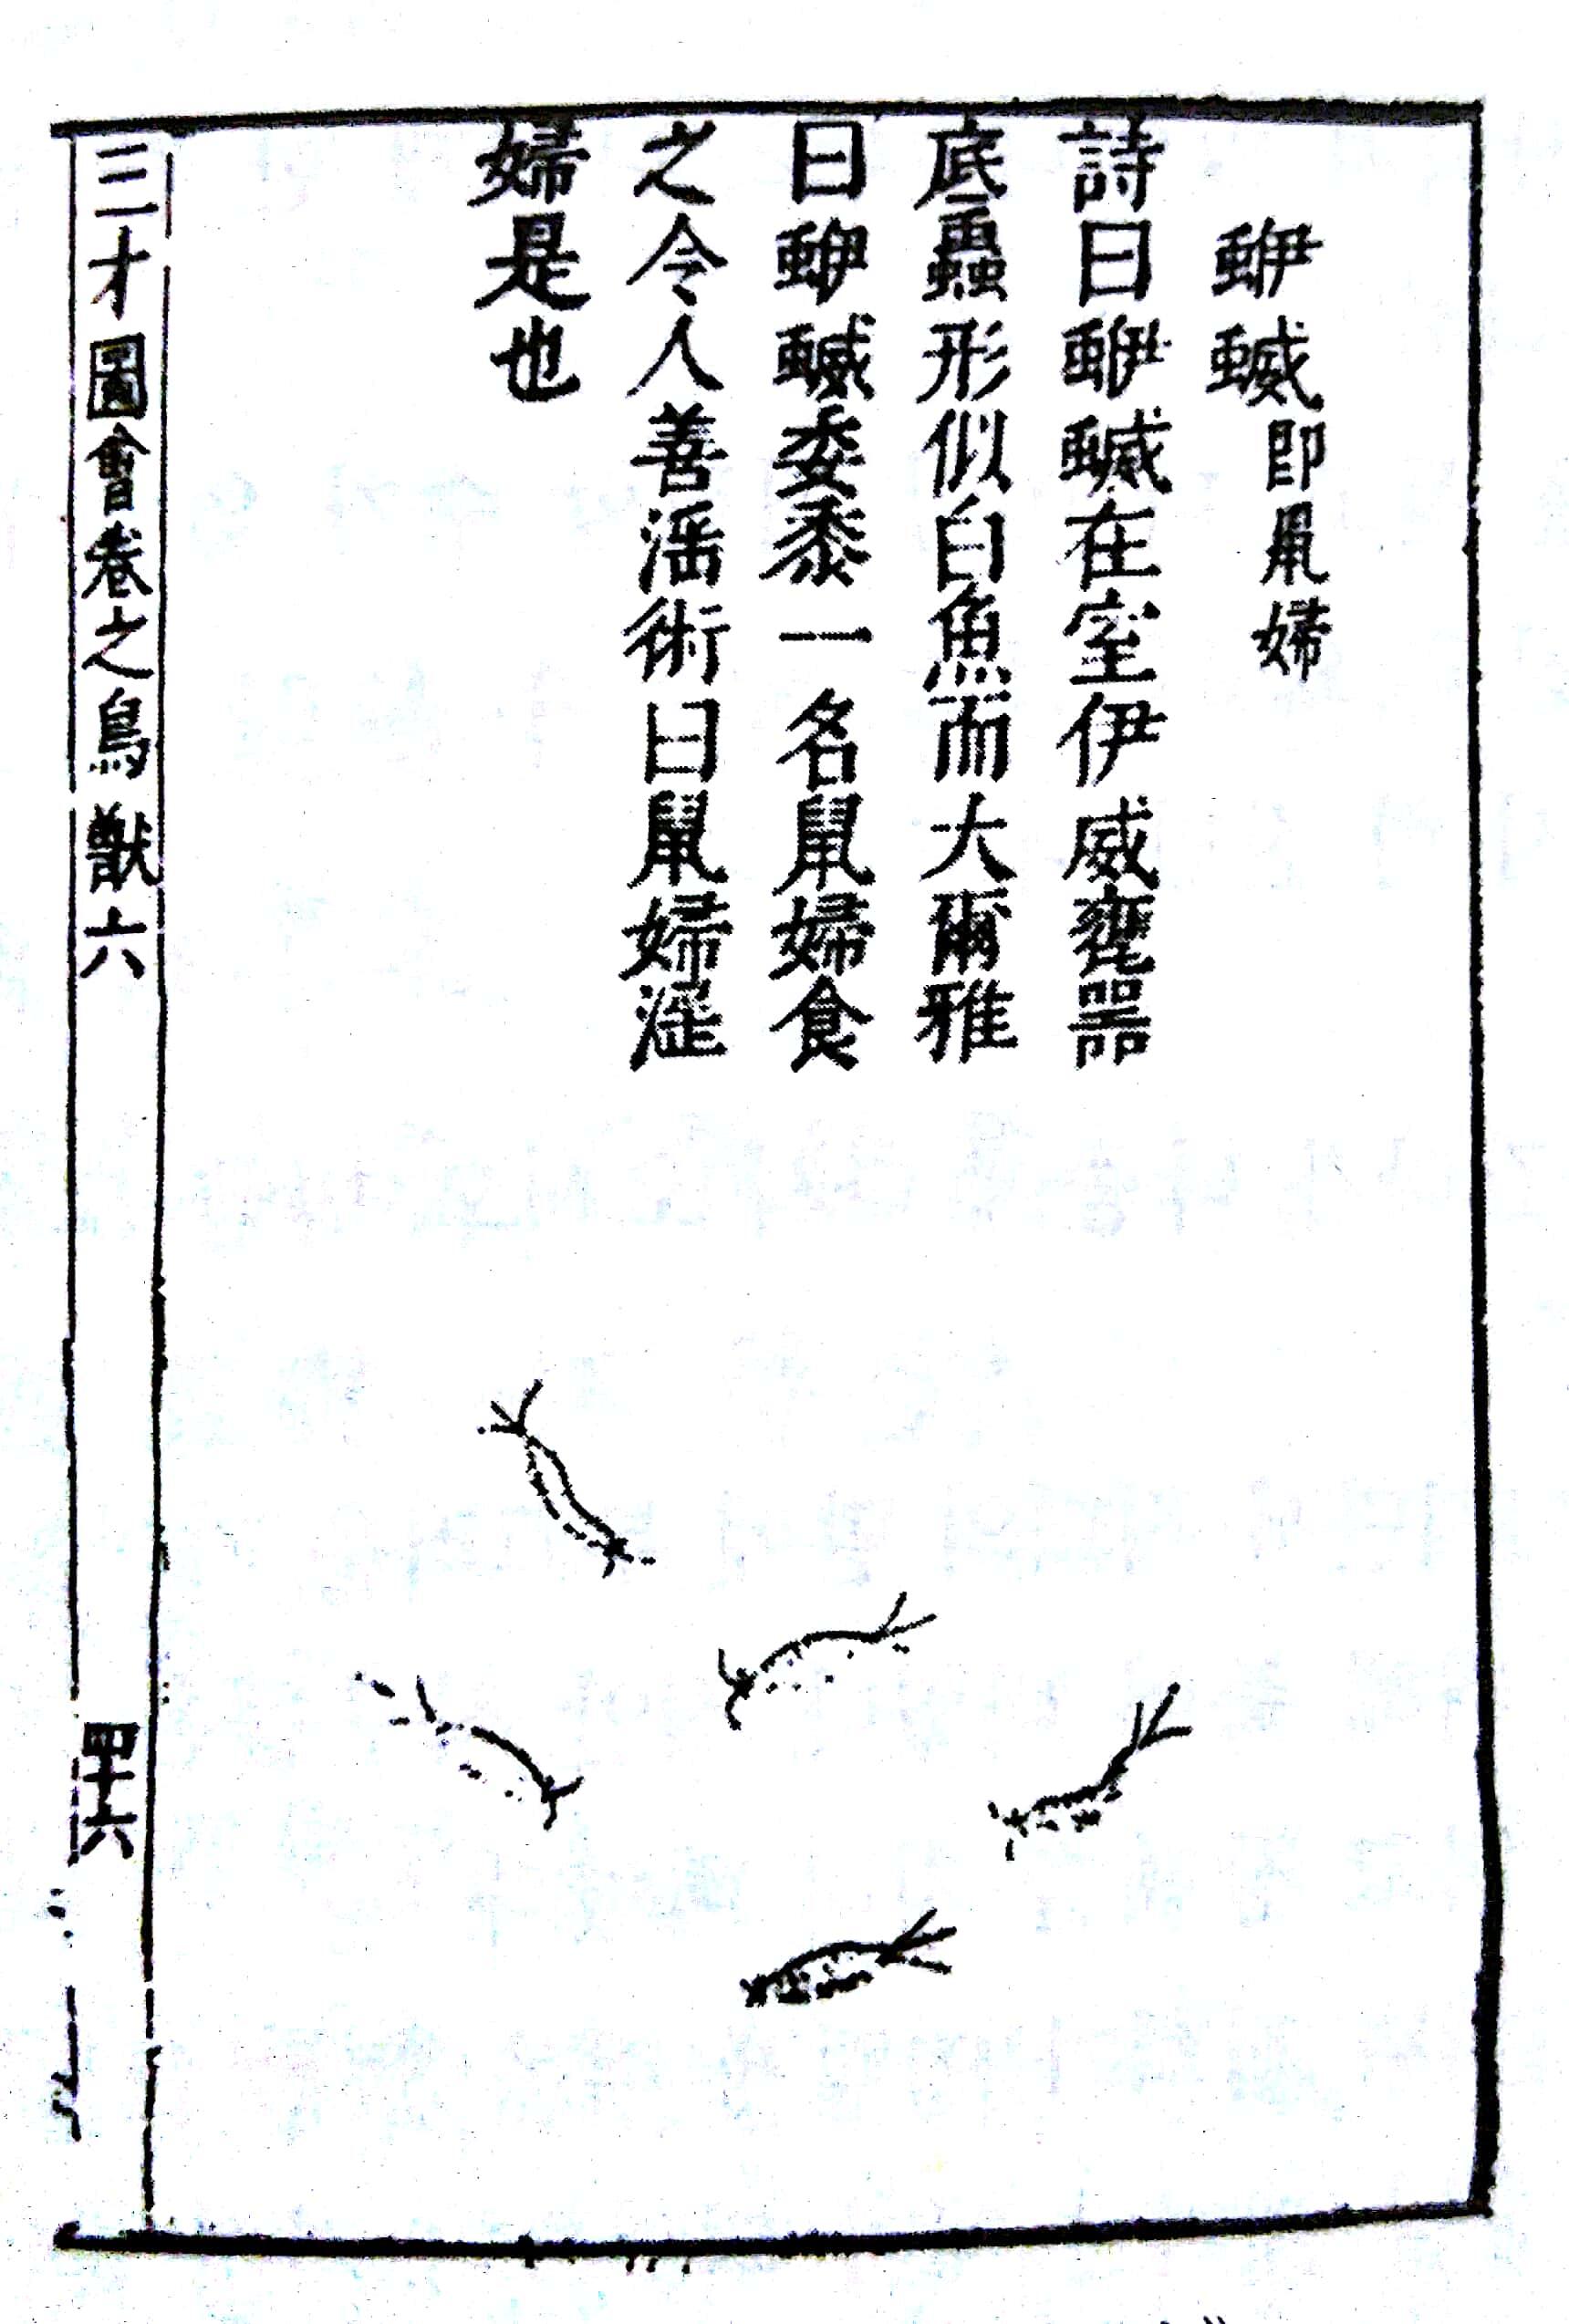 蛜蝛即鼠婦
詩曰蛜蝛在室伊威甕器
底蟲形似白魚而大爾雅
曰蛜蝛委黍一名鼠婦食
之令人善淫術曰鼠婦淫
婦是也
三才圖會卷之鳥獸六
四十六